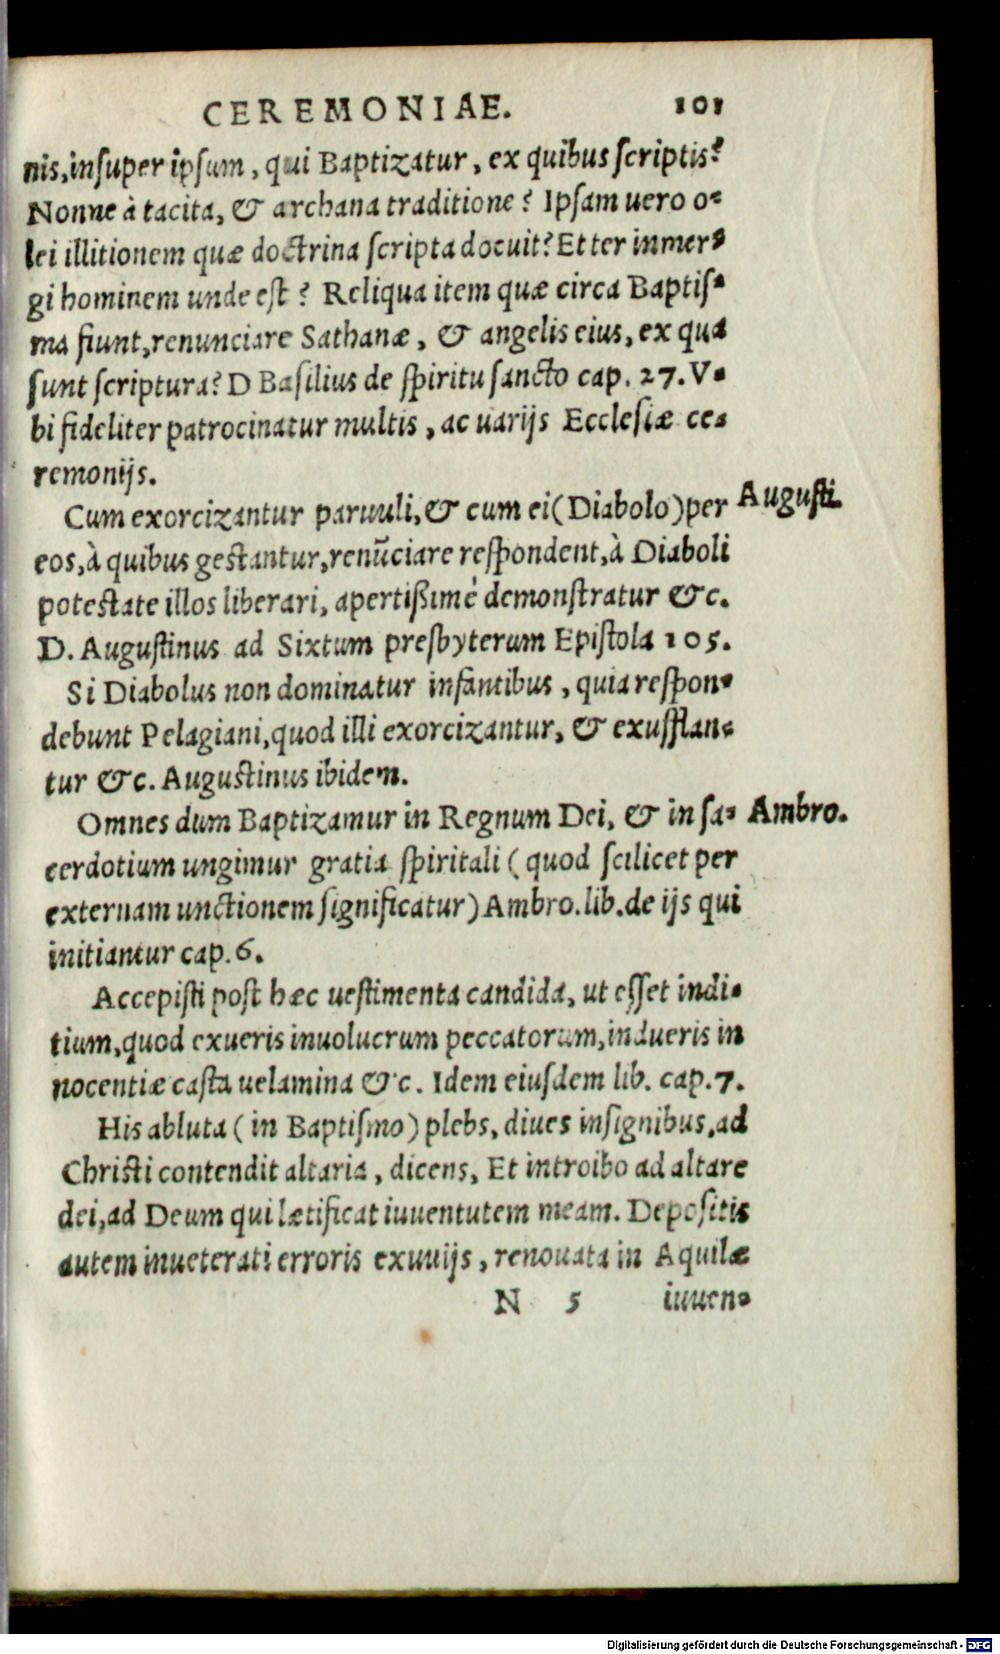 CEREMONIAE. 101
nis, insuper ipsum, qui Baptizatur, ex quibus scriptis?
Nonne à tacita, & archana traditione? Ipsam uero o-
lei illitionem quæ doctrina scripta docuit? Et ter inmer-
gi hominem unde est? Reliqua item quæ circa Baptis-
ma fiunt, renunciare Sathanæ, & angelis eius, ex qua
sunt scriptura? D Basilius de spiritu sancto cap. 27. V-
bi fideliter patrocinatur multis, ac uarijs Ecclesiæ ce-
remonijs.
Cum exorcizantur paruuli, & cum ei (Diabolo) per Augusti.
eos, à quibus gestantur, renũciare respondent, à Diaboli
potestate illos liberari, apertißimè demonstratur &c.
D. Augustinus ad Sixtum presbyterum Epistola 105.
Si Diabolus non dominatur infantibus, quia respon-
debunt Pelagiani, quod illi exorcizantur, & exufflan-
tur &c. Augustinus ibidem.
Omnes dum Baptizamur in Regnum Dei, & in sa- Ambro.
cerdotium ungimur gratia spiritali (quod scilicet per
externam unctionem significatur) Ambro. lib. de ijs qui
initiantur cap. 6.
Accepisti post hæc uestimenta candida, ut esset indi-
tium, quod exueris inuolucrum peccatorum, indueris in
nocentiæ casta uelamina &c. Idem eiusdem lib. cap. 7.
His abluta (in Baptismo) plebs, diues insignibus, ad
Christi contendit altaria, dicens, Et introibo ad altare
dei, ad Deum qui lætificat iuuentutem meam. Depositis
autem inueterati erroris exuuijs, renouata in Aquilæ
N 5 iuuen-
Digitalisierung gefördert durch die Deutsche Forschungsgemeinschaft - DFG